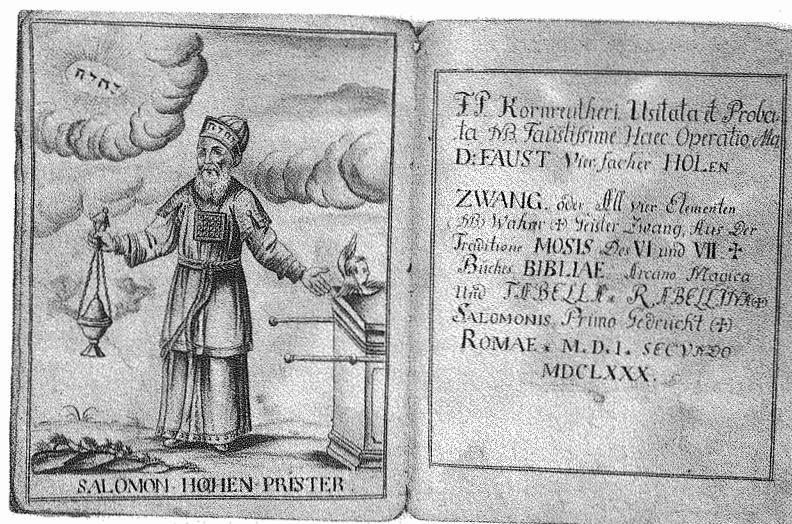 יהוה
יהוה
SALOMON HOHEN PRISTER
Kornreutheri Usitata et Proba-
ta NB Faustissime Haec Operatio
D: FAUST Vier facher HOLEN
ZWANG. oder All vier Elementen
NB Wahrer (+) Geister Zwang, Aus Der
Traditione MOSIS Des VI und VII +
Buches BIBLIAE Arcano Magica
Und TABELLA RABELLINA (+)
SALOMONIS. Primo Gedruckt (+)
ROMAE. M.D.I. SECUNDO
MDCLXXX.